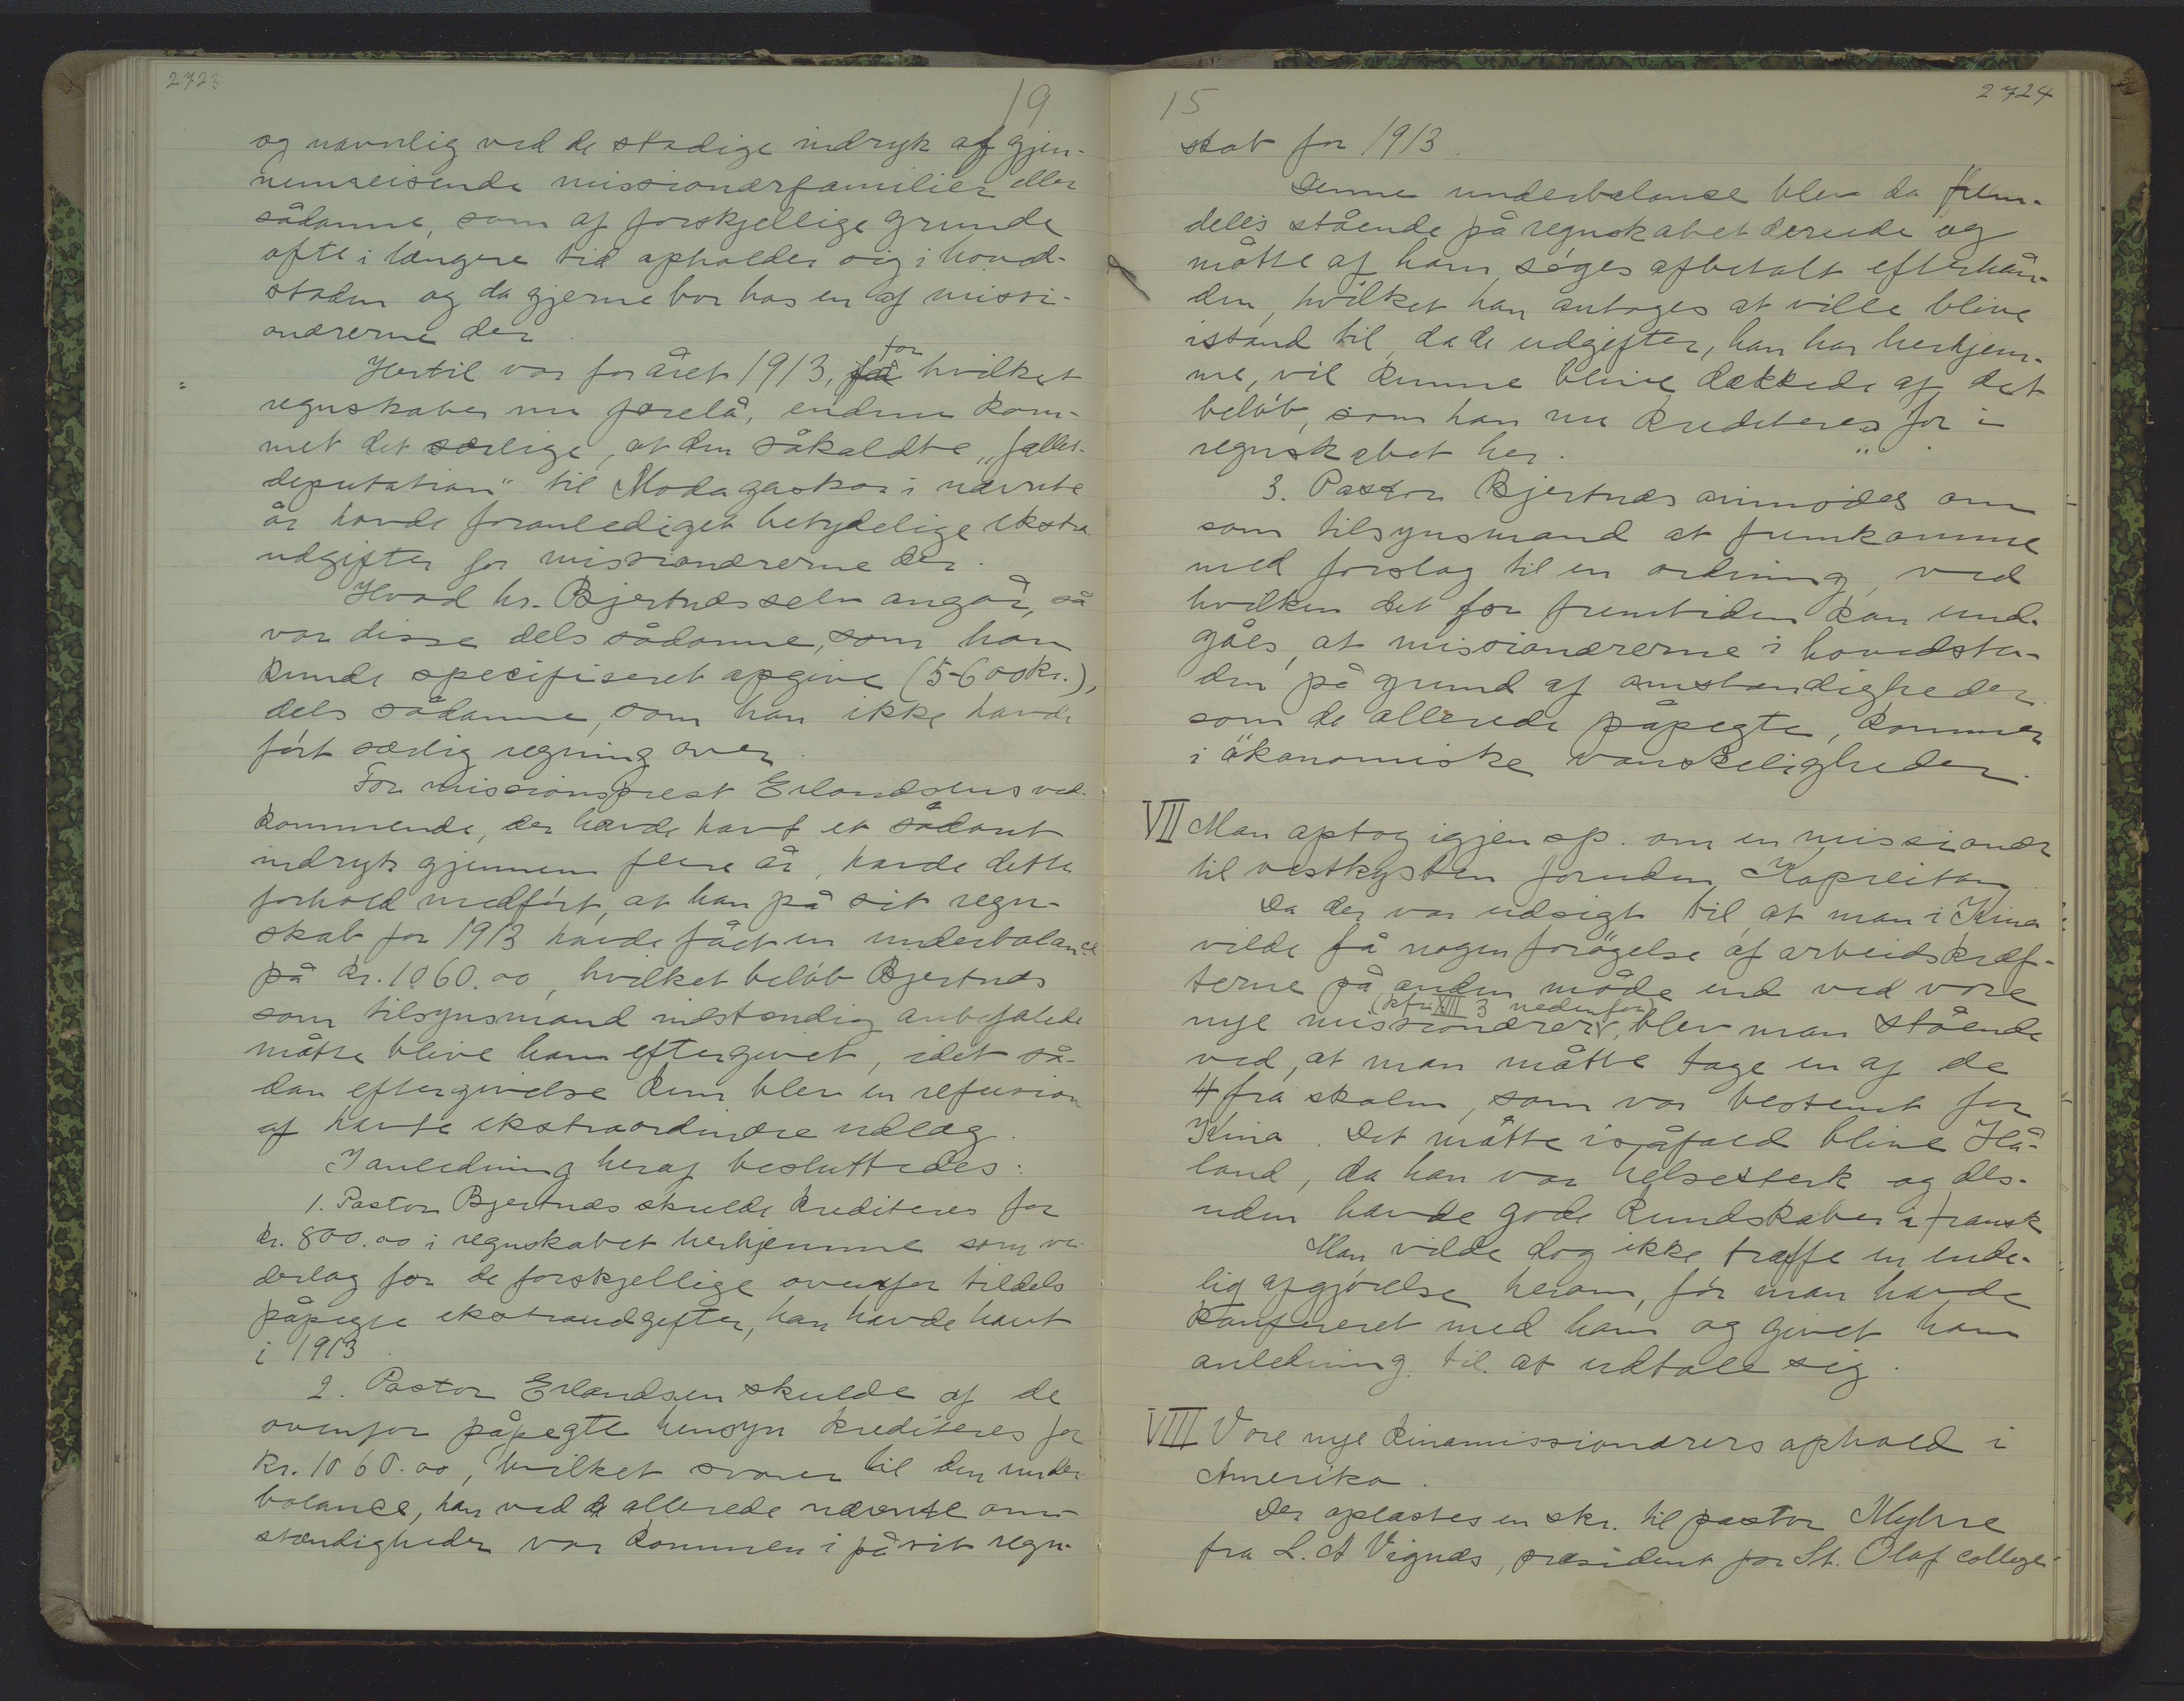 2723
19
og navnlig ved de stadige indryk af gjen-
nemreisende missionærfamilier eller
sådanne, som af forskjellige grunde
ofte i længere tid opholder sig i hoved-
staden og da gjerne bor hos en af missi-
onærerne der.
for
Hertil var for året 1913, hvilket
regnskaber nu forelå, endnu kom-
met det særlige, at den såkaldte "fælles-
deputation" til Madagaskar i nævnte
år havde foranlediget betydelige ekstra
udgifter for missionærerne der.
Hvad hr. Bjertnæs selv angår, så
var disse dels sådanne, som han
kunde specifiseret opgive (5-600kr.),
dels sådanne, som han ikke havde
ført særlig regning over.
For missionsprest Erlandsens ved-
kommende, der havde havt et sådant
indryk gjennem flere år, havde dette
forhold medført, at han på sit regn-
skab for 1913 havde fået en underbalance
på kr. 1060.00, hvilket beløb Bjertnæs
som tilsynsmand indstændig anbefalede
måtte blive ham eftergivet, idet så-
dan eftergivelse kun blev en refusion
af havte ekstraordinære udlæg.
I anledning heraf besluttedes:
1. Pastor Bjertnæs skulde krediteres for
kr. 800.00 i regnskabet herhjemme som ve-
derlag for de forskjellige ovenfor tildels
påpegte ekstraudgifter, han havde havt
i 1913.
2. Pastor Erlandsen skulde af de
ovenfor påpegte hensyn krediteres for
kr. 1060.00, hvilket svarer til den under-
balance, han ved de allerede nævnte om-
stændigheder var kommen i på sit regn-
15
2724
skab for 1913.
Denne underbalanse blev da frem-
deles stående på regnskabet derude og
måtte af ham søges afbetalt efterhån-
den, hvilket han antages at ville blive
istand til, da de udgifter, han har herhjem-
me, vil kunne blive dækkede af det
beløb, som han nu krediteres for i
regnskabet her.
3. Pastor Bjertnæs anmodes om
som tilsynsmand at fremkomme
med forslag til en ordning, ved
hvilken det for fremtiden kan und-
gåes, at missionærerne i hovedsta-
den på grund af omstændigheder
som de allerede påpegte, kommer
i økonomiske vanskeligheder.
VII Man optog igjen sp. om en missionær
til vestkysten foruden Kopreitan.
Da der var udsigt til, at man i Kina
vilde få nogen forøgelse af arbeidskræf-
terne på anden måde end ved vore
(kfr XIII 3 nedenfor)
nye missionærer, blev man stående
ved, at man måtte tage en af de
4 fra skolen, som var bestemt for
Kina. Det måtte isåfald blive Hå-
land, da han var helsesterk og des-
uden havde gode kundskaber i fransk
Man vilde dog ikke træffe en ende-
lig afgjørelse herom, før man havde
konfereret med ham og givet ham
anledning til at udtale sig.
VIII Vore nye kinamissionærers ophold i
Amerika.
Der oplæstes en skr. til pastor Myhre
fra L. A Vignæs, præsident for St. Olaf college